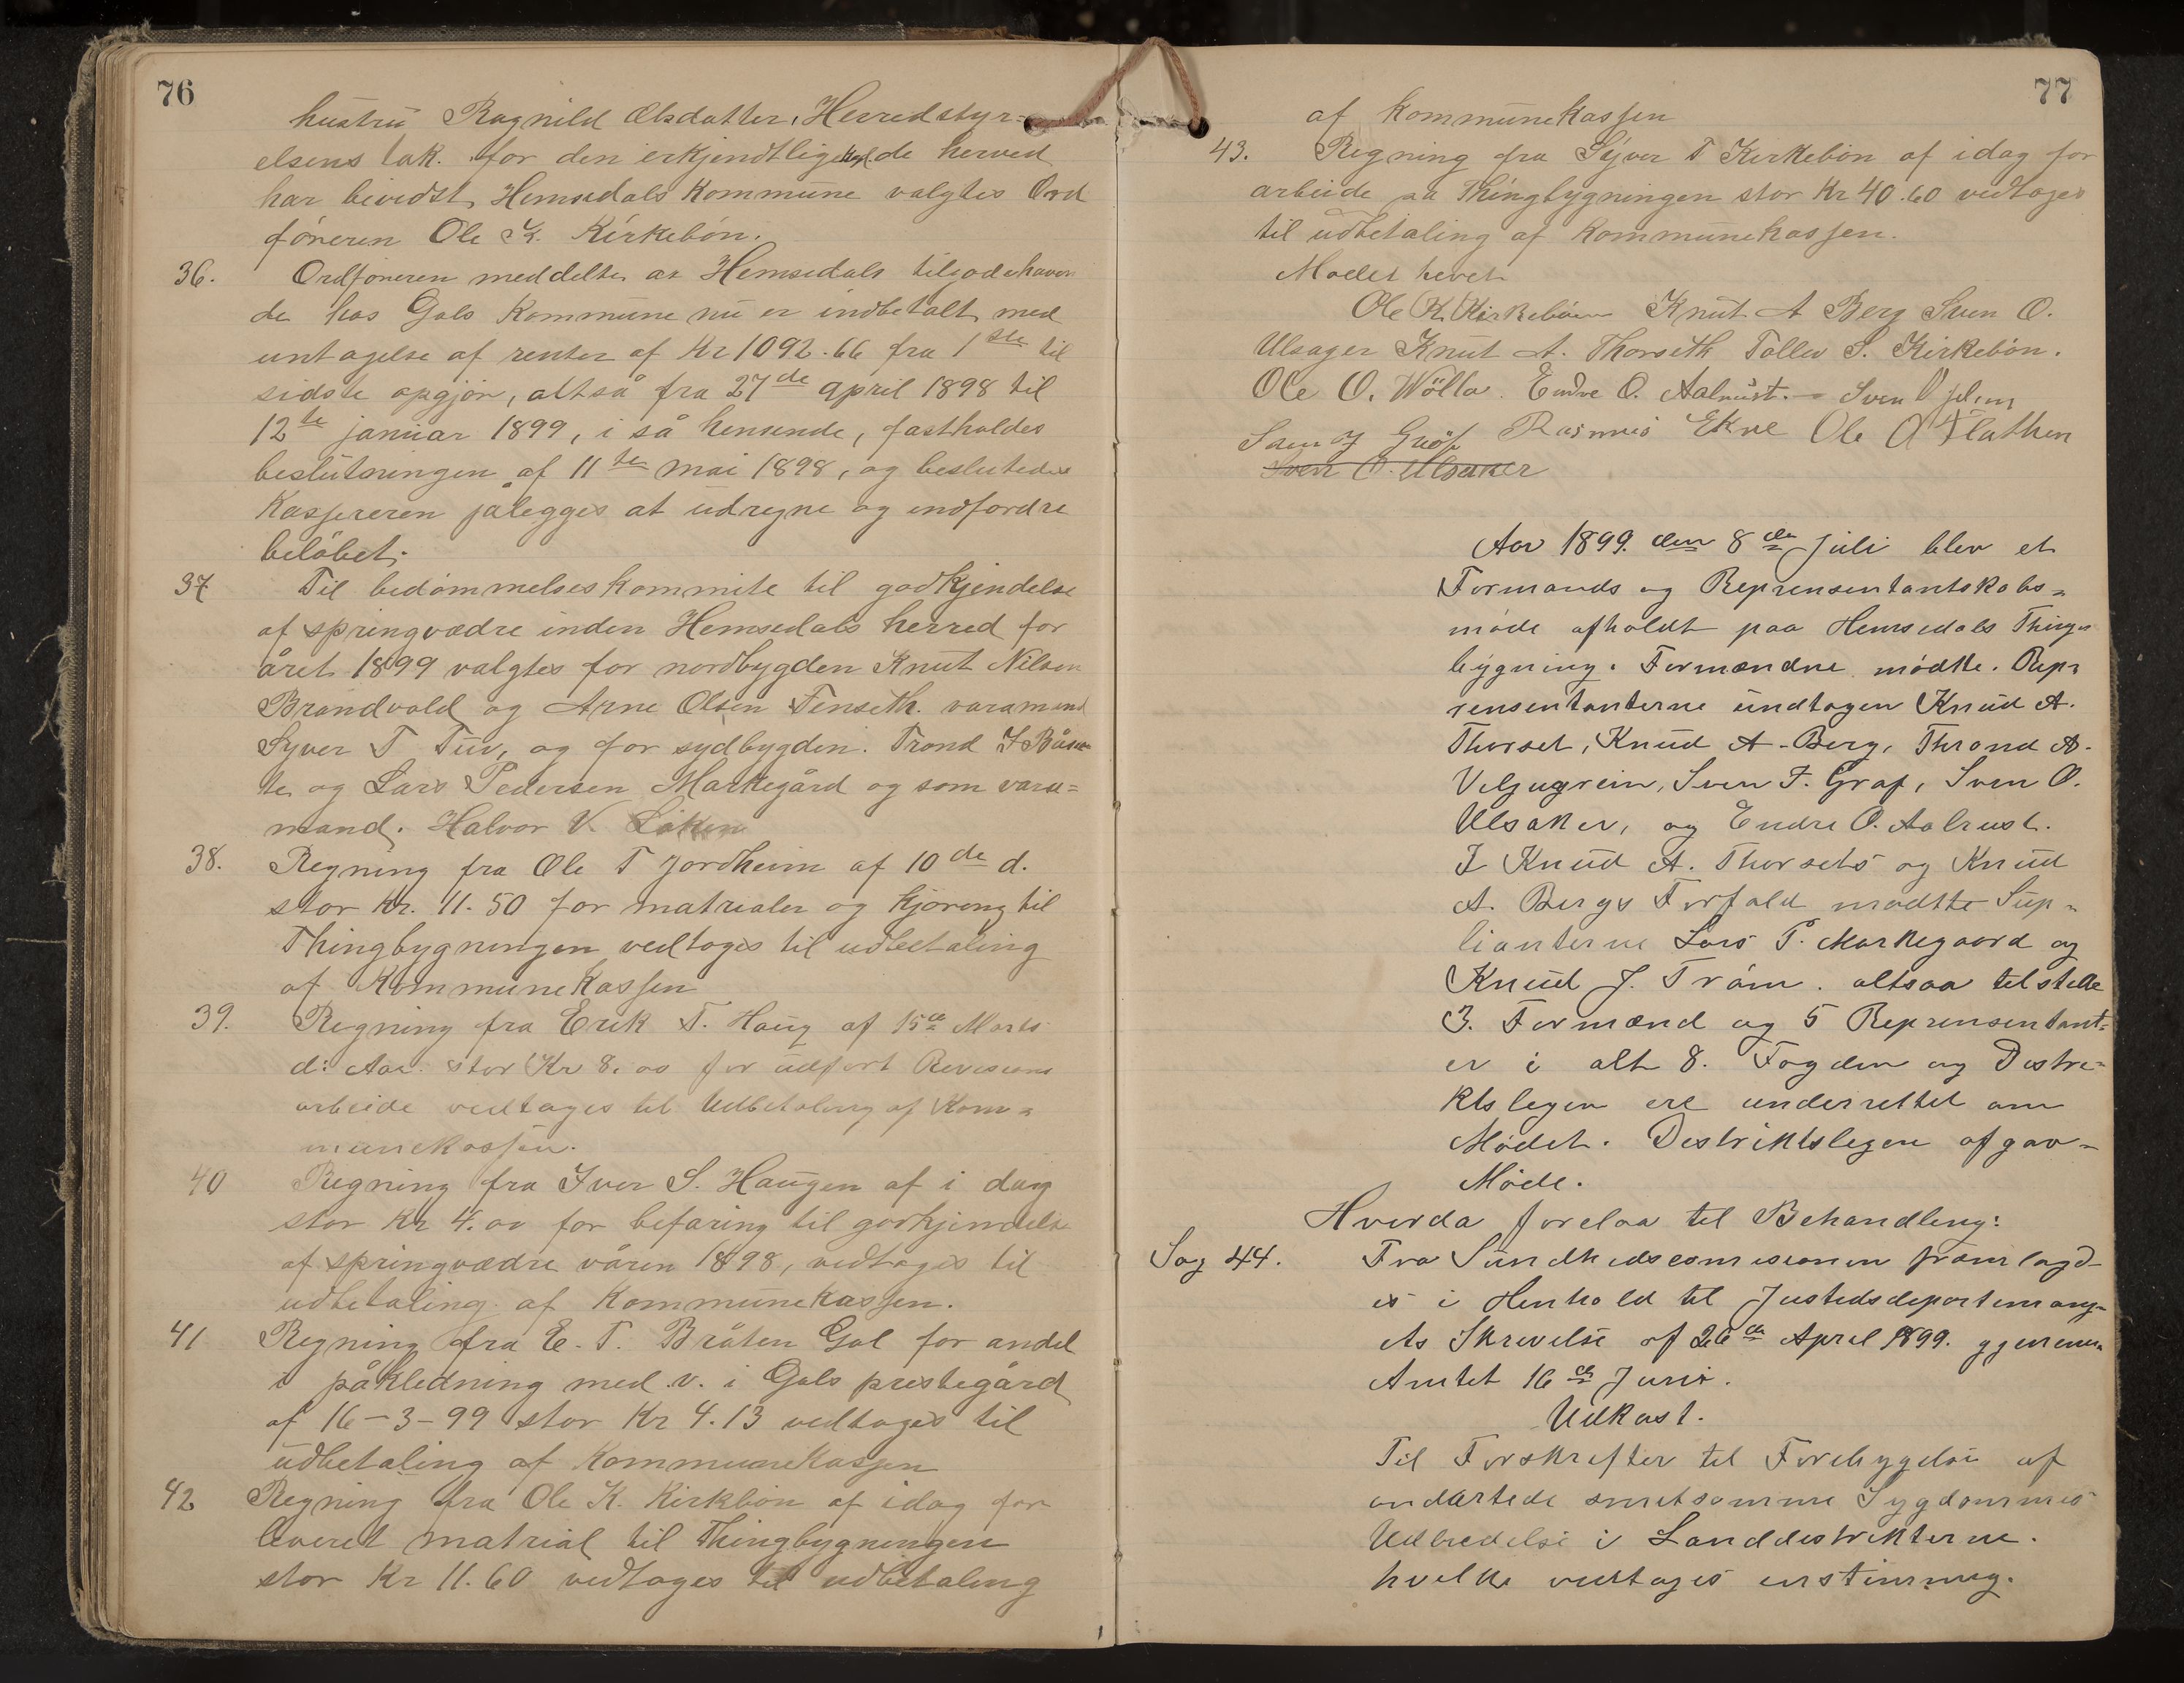 76
hustru Ragnild Olsdatter, Herredstyr=
elsens tak for den erkjendtlighed de herved
har bevidst Hemsedals Kommune valgtes Ord
föreren Ole K. Kirkebön.
36. Ordföreren meddelte at Hemsedals tilgodehaven
de hos Gols Kommune nu er indbetalt med
untagelse af renter af Kr 1092.66 fra 1ste til
sidste opgjör, altså fra 27de april 1898 til
12te januar 1899, i så henseende, fastholdes
beslutningen af 11te mai 1898, og beslutedes
Kassereren pålegges at udregne og indfordre
belöbet.
37 Til bedömmelseskommite til godkjendelse
af springvædre inden Hemsedals herred for
året 1899 valgtes for nordbygden Knut Nilsen
Brandvold og Arne Olsen Fenseth. varamend
Syver T Tuv, og for sydbygden. Trond
te og Lars Pedersen Markegård og som vara=
mand. Halvor V. Löken
38. Regning fra Ole T Jordheim af 10de d.
stor Kr. 11.50 for matrialer og kjöreng til
Thingbygningen vedtoges til udbetaling
af Kommunekassen
39. Regning fra Erik T. Haug af 15de Marts
d: Aar. stor Kr 8.00 for udfört Revisions
arbeide vedtages til Udbetaling af Kom=
munekassen.
40 Regning fra Iver S. Haugen af i dag
stor Kr 4.00 for befaring til godkjendelse
af springvædre våren 1898, vedtages til
udbetaling af Kommunekassen.
41 Regning fra E. T. Bråten Gol for andel
i påkledning med.v. i Gols prestegård
af 16-3-99 stor Kr 4.13 vedtages til
udbetaling af Kommunekassen
42 Regning fra Ole K. Kirkbön af idag for
leveret matrial til Thingbygningen
stor Kr 11.60 vedtages til udbetaling
77
af Kommunekassen
43. Regning fra Syver T Kirkebön af idag for
arbeide på Thingbygningen stor Kr 40.60 vedtages
til udbetaling af Kommunekassen.
Mödet hevet
Ole K. Kirkeböen Knut A Berg Sven O.
Ulsager Knut A. Thorseth Tollev S. Kirkebön.
Ole O. Wölla. Endre O. Aalrust. Sven
Sven Gröf Rasmus Ekre Ole A Flathen
Sven O. Ulsaker
Aar 1899. den 8de Juli blev et
Formands og Reprensentantskabs=
möde afholdt paa Hemsedals Things
bygning. Formændne mödte. Rep=
rensentanterne undtagen Knud A.
Thorset, Knud A. Berg, Thrond A.
Veljugrein, Sven T. Grøf, Sven O.
Ulsaker, og Endre O. Aalrust.
I Knud A. Thorsets og Knud
A. Bergs Forfald mødtte Sup=
lianterne Lars P. Markegaard og
Knud J. Tröim. altsaa tilstelle
3. Formænd og 5 Reprensentant=
er i alt 8. Fogden og Distre=
ktslegen ere underrettet om
Mödet. Destriktslegen afgav
Möde.
Hverda forelaa til Behandling:
Sag 44. Fra Sundhedscomisionen framlagd
es i Henhold til Justedsdepartemang=
ets Skrevelse af 26de April 1899. gjenem
Amtet 16de Juni.
Udkast.
Til Forskrefter til Forebygelse af
ondartede smetsomme Sygdommes
Udbredelse i Landdestrikterne.
hvelke vedtages enstimmig.